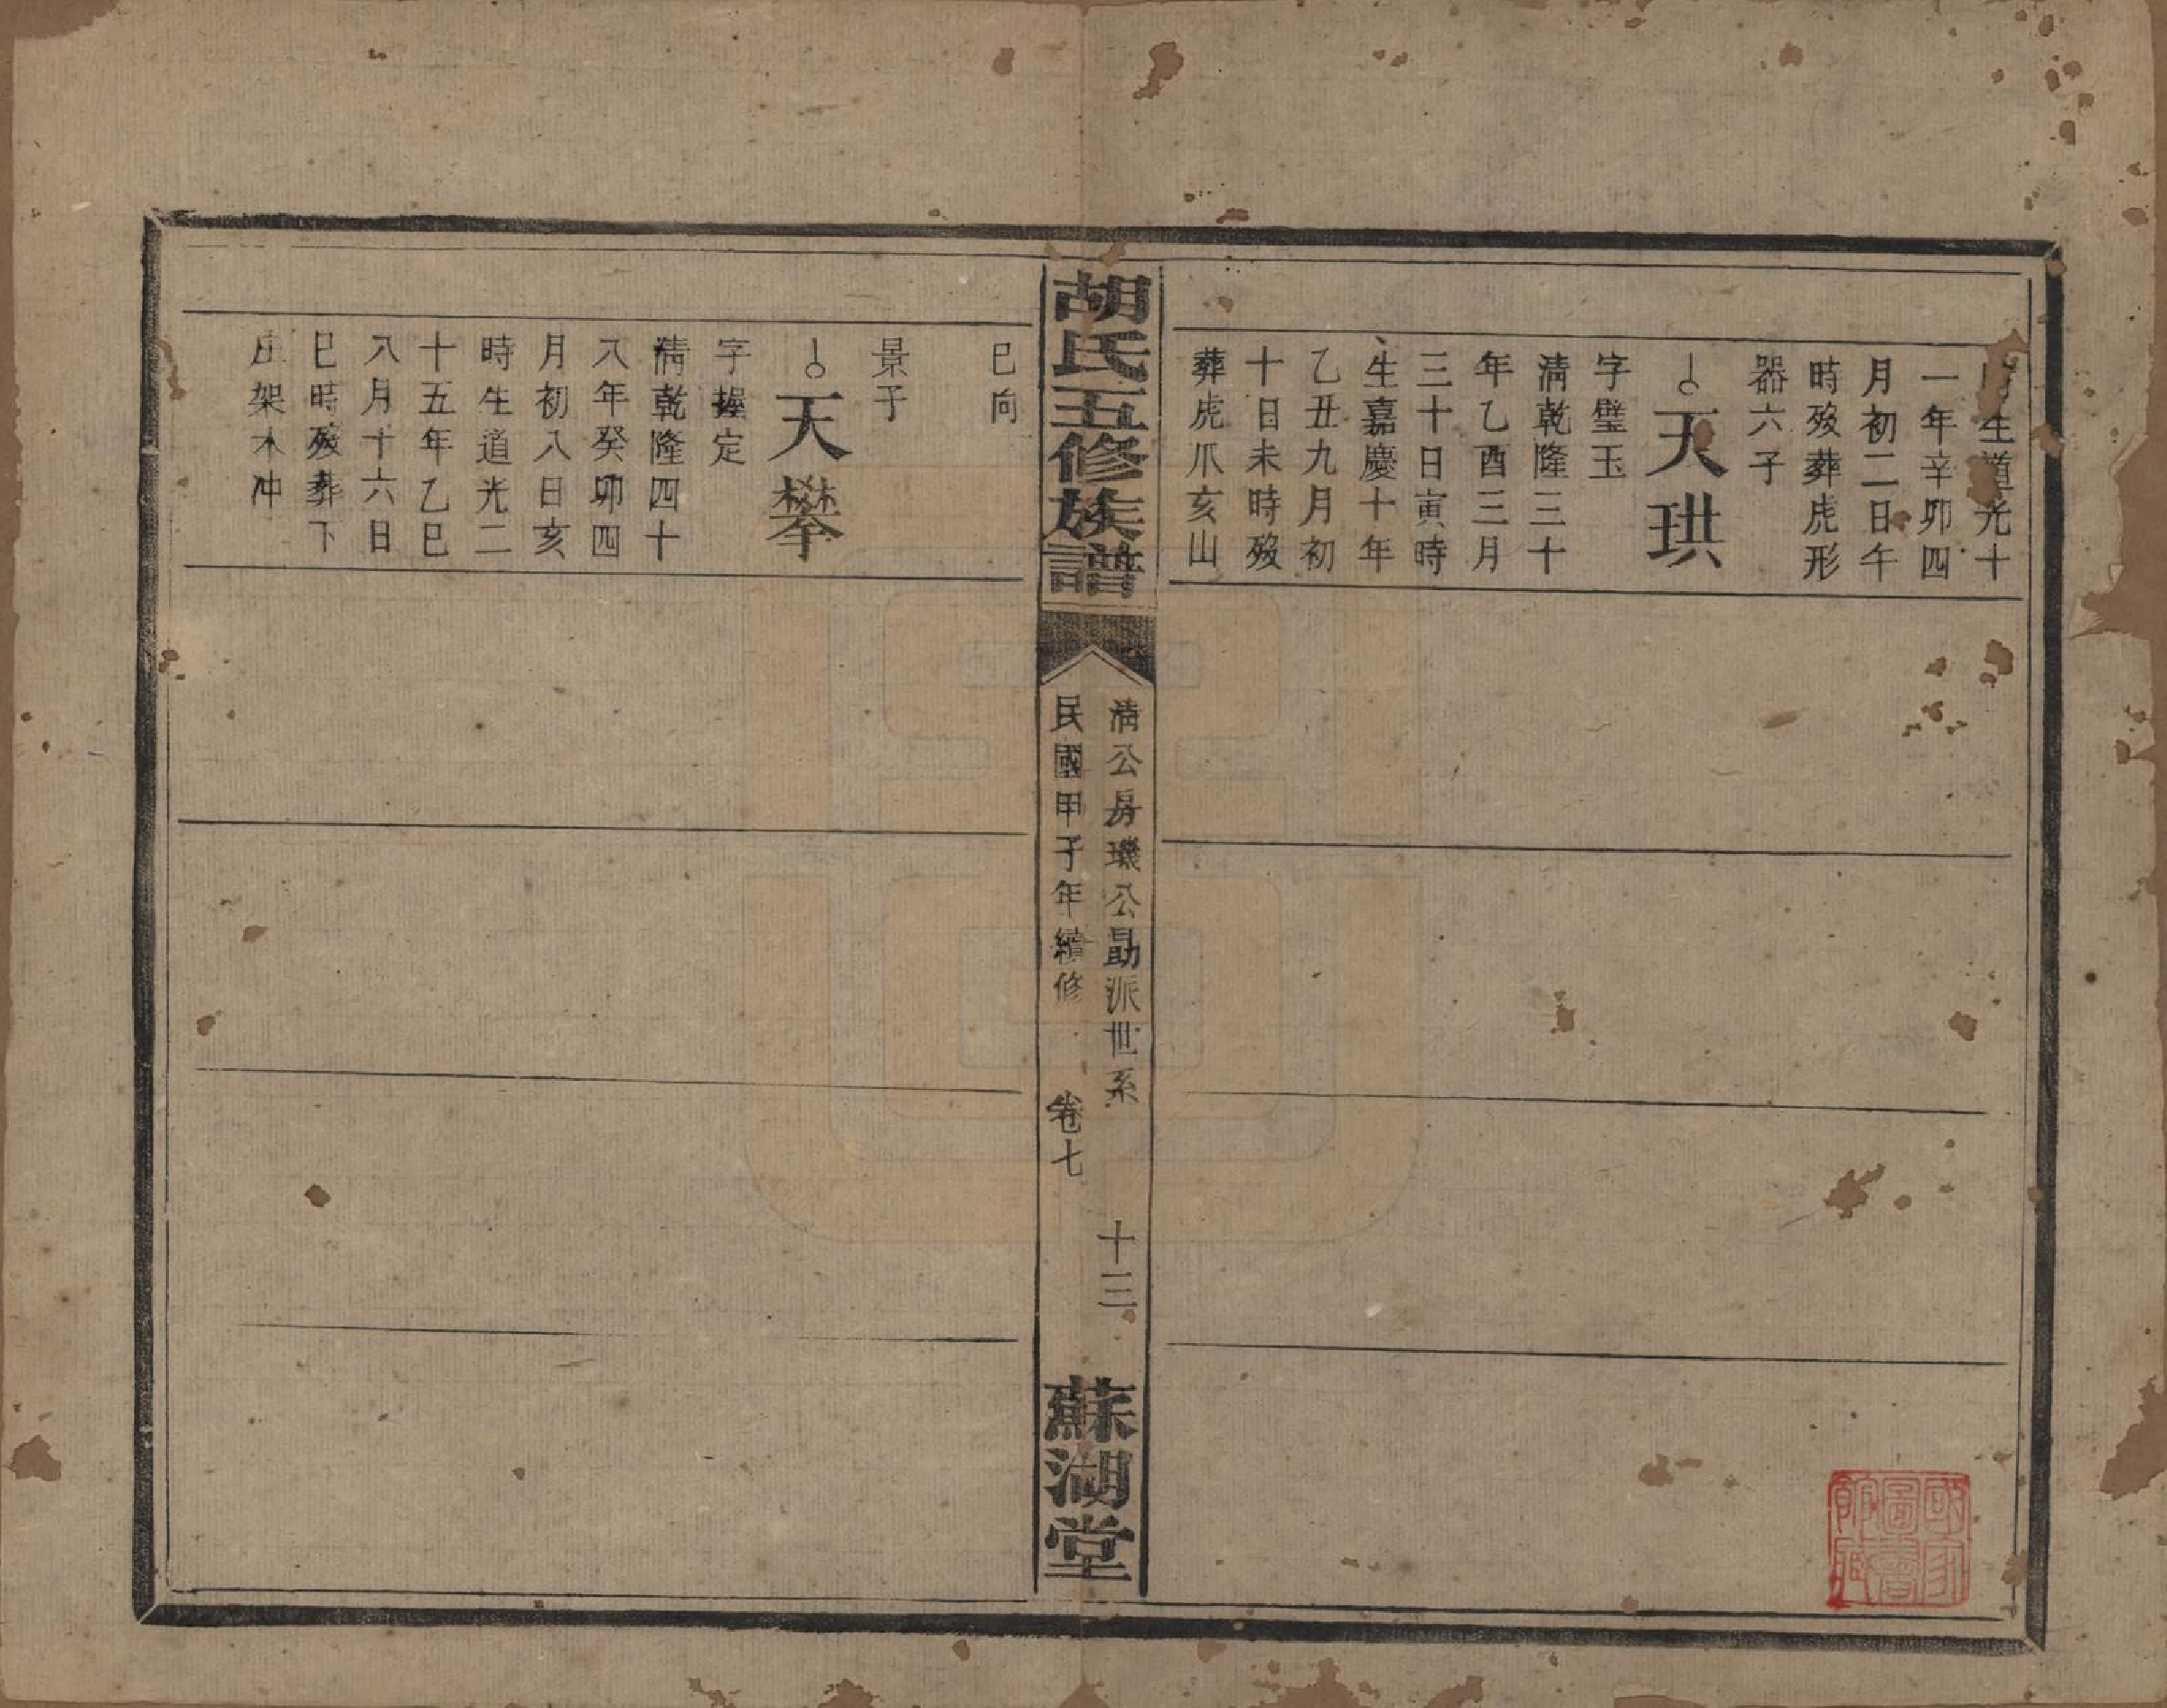 時生道光十
一年辛卯四
月初二日午
時殁葬虎形
器六子
天珙
字璧玉
清乾隆三十
年乙酉三月
三十日寅時
生嘉慶十年
乙丑九月初
十日未時殁
葬虎爪亥山
胡氏五修族譜
清公房璣公勗派世系
十三
民國甲子年續修
卷七
蘇湖堂
巳向
景子
天攀
字握定
清乾隆四十
八年癸卯四
月初八日亥
時生道光二
十五年乙巳
八月十六日
巳時殁葬下
庄架木冲
國家
圖書
館藏